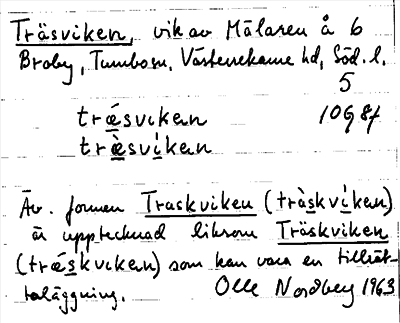 Träsviken, vik av Mälaren å 6
Broby, Tumbo sn, Västerrekarne hd, Söd. l.
5
trǽsvıken 10G 8f
træ̀svíken
Äv. formen Traskviken (tràskvíken)
är upptecknad liksom Träskviken
(trǽskvıken) som kan vara en tillrät-
taläggning. Olle Nordberg 1963